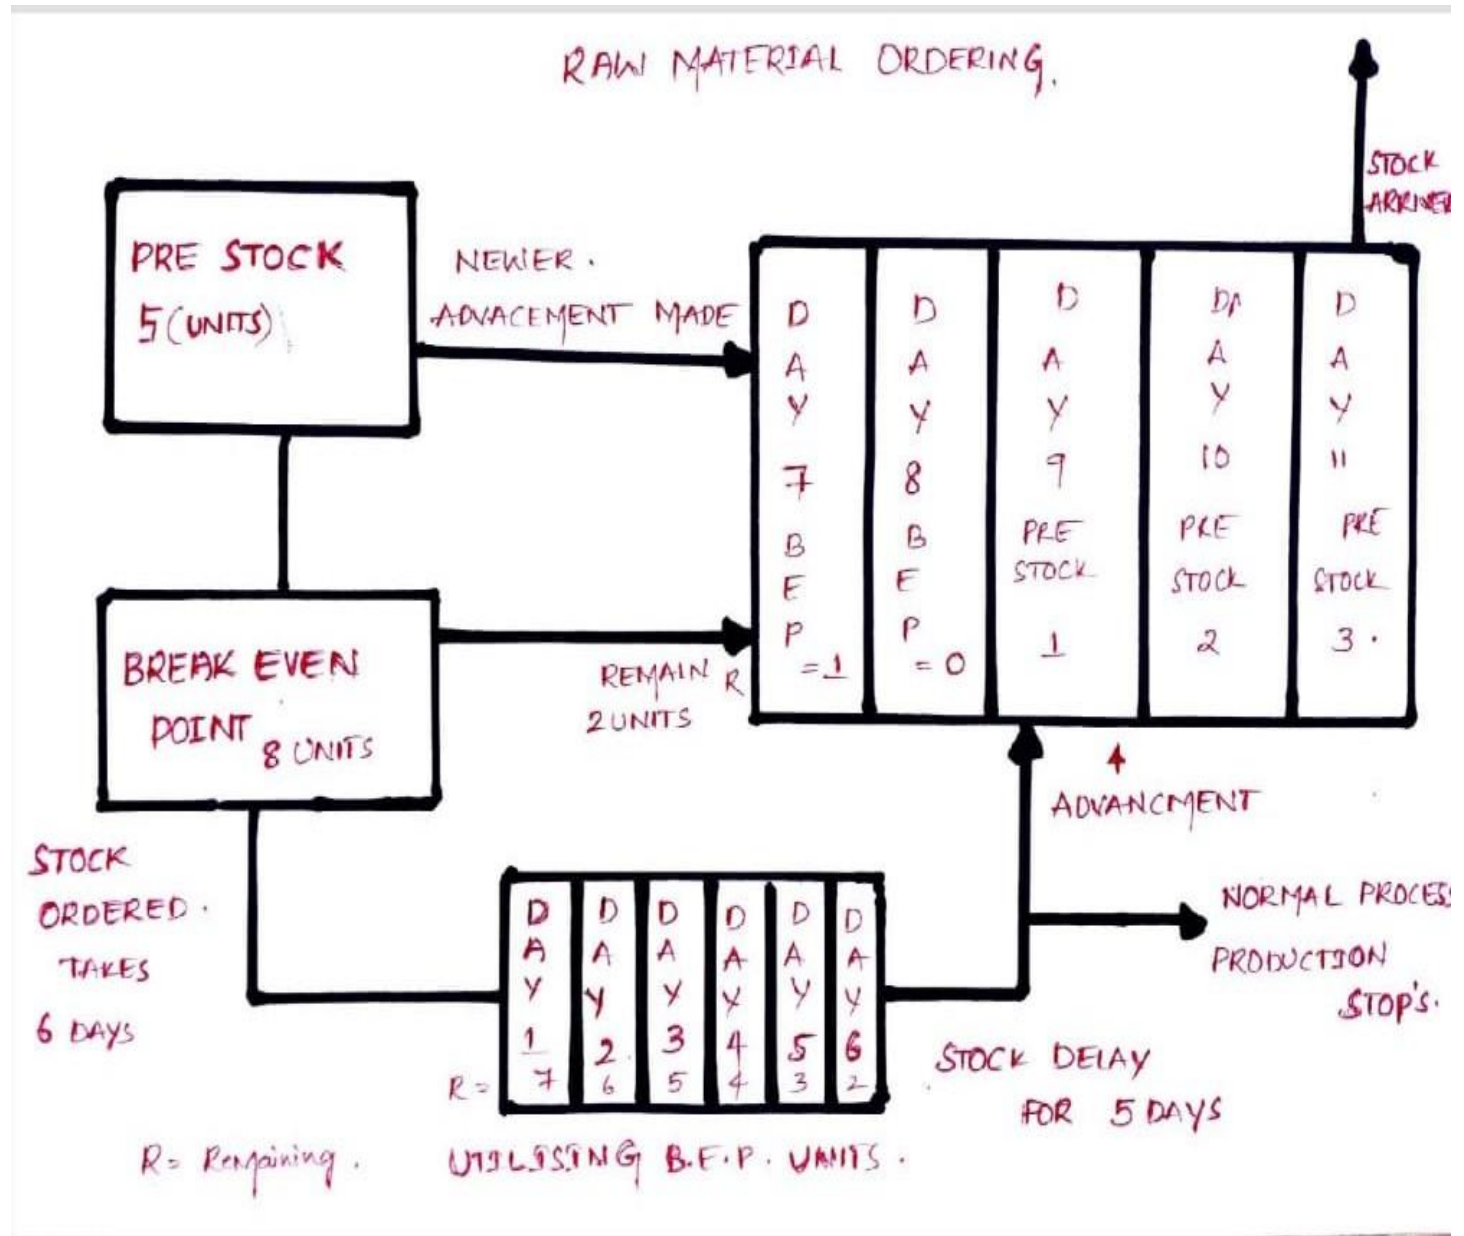 RAW MATERIAL ORDERING.
STOCK
ARRIVED
PRE STOCK
5 (UNITS)
NEWER.
ADVACEMENT MADE
DAY 7 BEP = 1
DAY 8 BEP = 0
DAY 9 PRE STOCK 1
DAY 10 PRE STOCK 2
DAY 11 PRE STOCK 3.
BREAK EVEN
POINT 8 UNITS
REMAIN R
2 UNITS
ADVANCMENT
STOCK
ORDERED.
TAKES
6 DAYS
DAY 1 7
DAY 2. 6
DAY 3 5
DAY 4 4
DAY 5 3
DAY 6 2
R =
NORMAL PROCESS
PRODUCTION
STOP'S.
STOCK DELAY
FOR 5 DAYS
R = Remaining.
UTILISING B.E.P. UNITS.